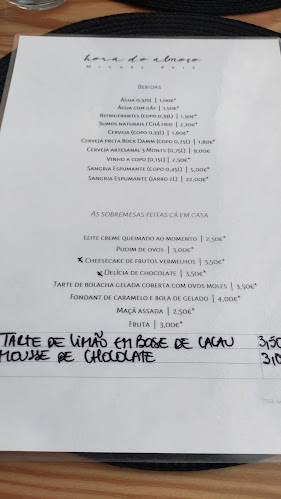 hora do almoço
Miguel Reis
Bebidas
Água 0,5(L) | 1,10€*
Água com gás | 1,50€*
Refrigerantes (copo 0,33L) | 1,50€*
Sumos naturais / Chá frio | 2,20€*
Cerveja (copo 0,33L) | 1,60€*
Cerveja preta Bock Damm (copo 0,25L) | 1,80€*
Cerveja artesanal 3 Monts (0,75L) | 9,00€
Vinho a copo (0,15L) | 2,50€*
Sangria Espumante (copo 0,45L) | 5,00€*
Sangria Espumante (jarro 2L) | 22,00€*
As sobremesas feitas cá em casa
Leite creme queimado ao momento | 2,50€*
Pudim de ovos | 3,00€*
x Cheesecake de frutos vermelhos | 3,50€*
x Delícia de chocolate | 3,50€*
Tarte de bolacha gelada coberta com ovos moles | 3,50€*
Fondant de caramelo e bola de gelado | 4,00€*
Maçã assada | 2,50€*
Fruta | 3,00€*
TARTE DE LIMÃO EM BASE DE CACAU 3,50
MOUSSE DE CHOCOLATE 3,0